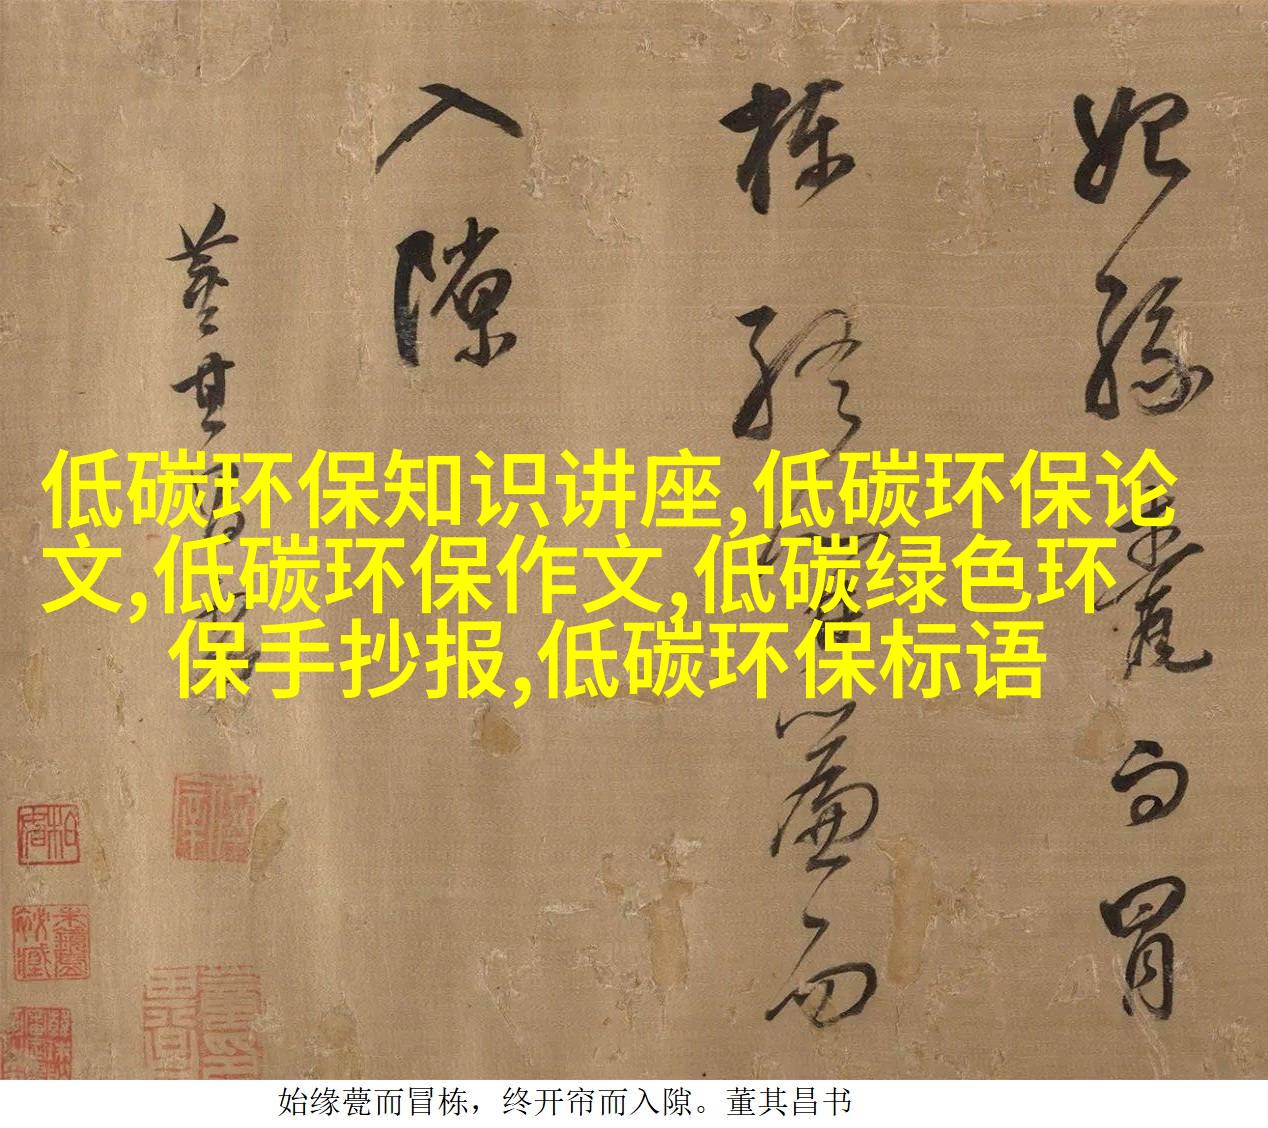 始緣甍而冒
棟終開簾而
入隙
董其昌書
低碳环保知识讲座,低碳环保论
文,低碳环保作文,低碳绿色环
保手抄报,低碳环保标语
始缘甍而冒栋，终开帘而入隙。董其昌书